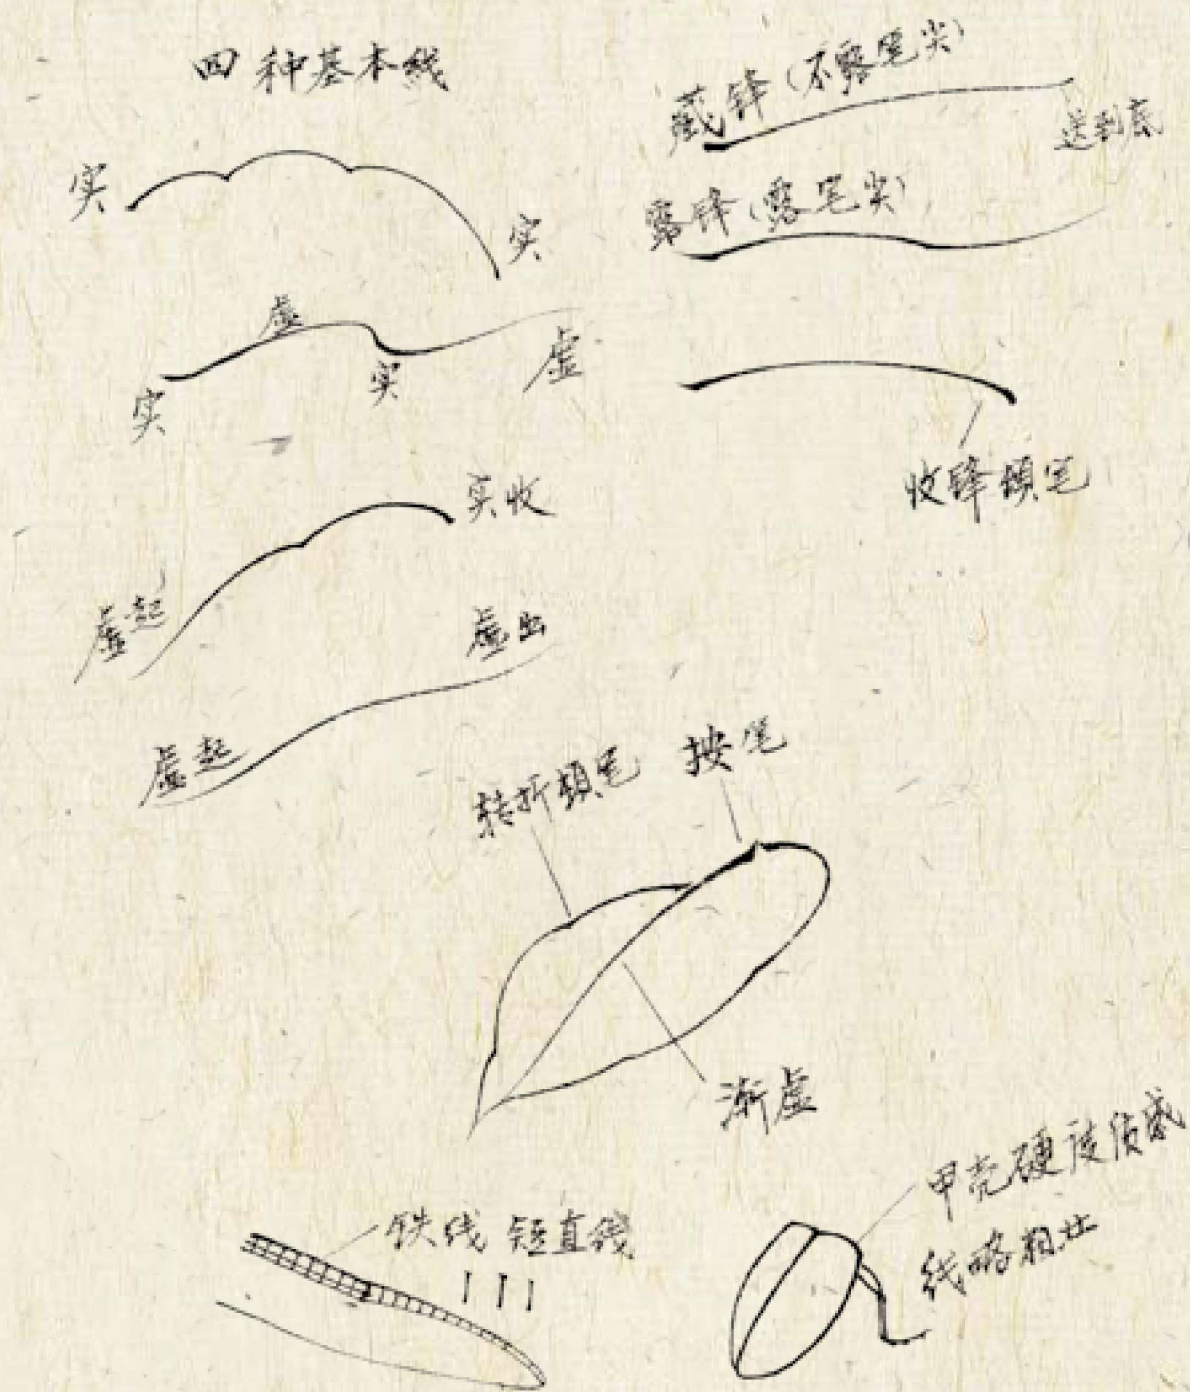 四种基本线
实
实
实
虚
实
虚
虚起
实收
虚起
虚出
藏锋（不露笔尖）
送到底
露锋（露笔尖）
收锋顿笔
转折顿笔
按笔
渐虚
铁线 短直线
甲壳硬 质感
线略粗壮